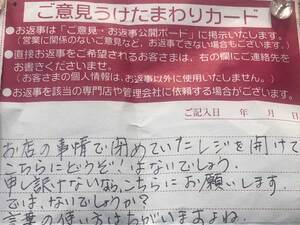 ご意見うけたまわりカード
●お返事は「ご意見・お返事公開ボード」に掲示いたします。
（営業に関係のないご意見など、お返事できない場合もございます。）
●直接お返事をご希望されるお客さまは、右の欄にご連絡先を
お書きくださいませ。
（お客さまの個人情報は、お返事以外に使用いたしません。）
●お返事を該当の専門店や管理会社に依頼する場合がございます。
ご記入日 年 月 日
お店の事情で閉めていたレジを開けて
こちらにどうぞ!はないでしょう。
申し訳けないなら、こちらにお願いします
では、ないでしょうか?
言葉の使い方はちがいますよね